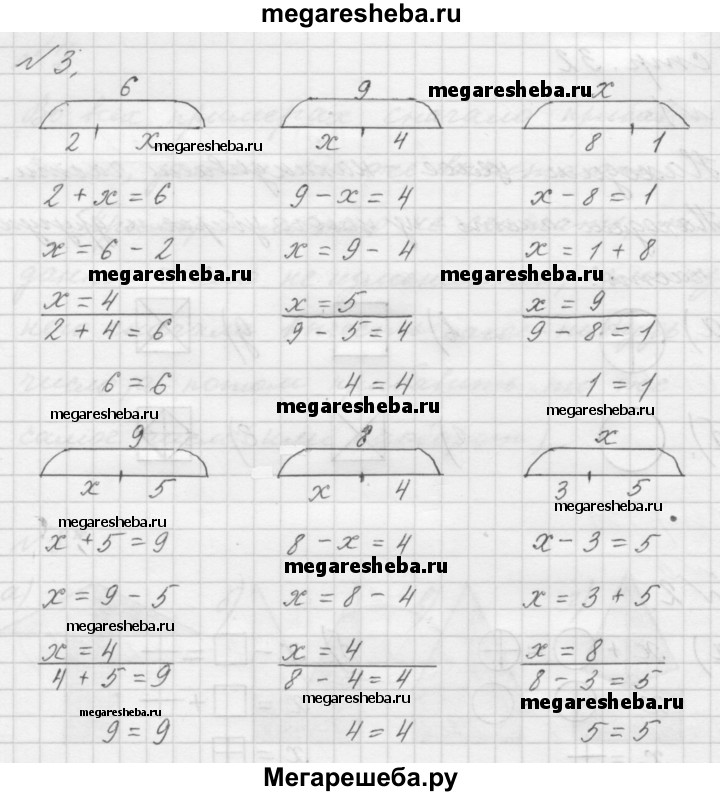 megaresheba.ru
№ 3.
6 9 megaresheba.ru x
2 x megaresheba.ru x 4 8 1
2 + x = 6 9 - x = 4 x - 8 = 1
x = 6 - 2 x = 9 - 4 x = 1 + 8
megaresheba.ru megaresheba.ru
x = 4 x = 5 x = 9
2 + 4 = 6 9 - 5 = 4 9 - 8 = 1
6 = 6 4 = 4 1 = 1
megaresheba.ru megaresheba.ru megaresheba.ru
9 8 x
x 5 x 4 3 5
megaresheba.ru megaresheba.ru
x + 5 = 9 8 - x = 4 x - 3 = 5
megaresheba.ru
x = 9 - 5 x = 8 - 4 x = 3 + 5
megaresheba.ru
x = 4 x = 4 x = 8
4 + 5 = 9 8 - 4 = 4 8 - 3 = 5
megaresheba.ru megaresheba.ru megaresheba.ru
9 = 9 4 = 4 5 = 5
Мегарешеба.ру